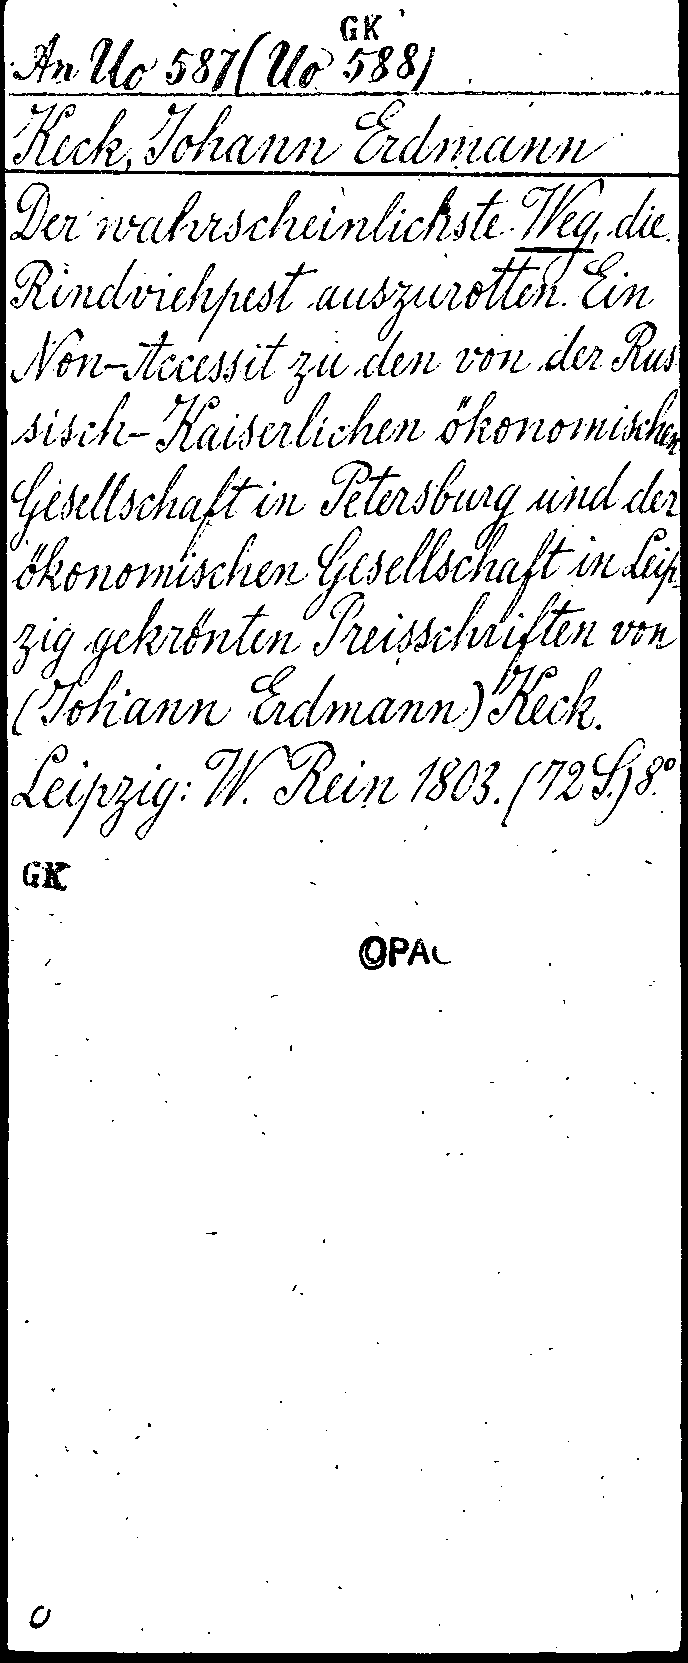 GK
An Uo 587 (Uo 588)
Keck, Johann Erdmann
Der wahrscheinlichste Weg, die
Rindviehpest auszurotten. Ein
Non-Accessit zu den von der Rus
sisch-Kaiserlichen ökonomischen
Gesellschaft in Petersburg und der
ökonomischen Gesellschaft in Leip
zig gekrönten Preisschriften von
(Johann Erdmann) Keck.
Leipzig: W. Rein 1803. (72 S.) 8°
GK
OPAC
0